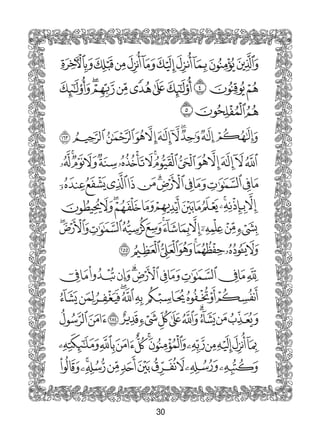 وَٱلَّذِينَ يُؤْمِنُونَ بِمَآ أُنزِلَ إِلَيْكَ وَمَآ أُنزِلَ مِن قَبْلِكَ وَبِٱلْأَخِرَةِ
هُمْ يُوقِنُونَ ٤ أُو۟لَٰٓئِكَ عَلَىٰ هُدًى مِّن رَّبِّهِمْ ۖ وَأُو۟لَٰٓئِكَ
هُمُ ٱلْمُفْلِحُونَ ٥
وَإِلَٰهُكُمْ إِلَٰهٌ وَٰحِدٌ ۖ لَّآ إِلَٰهَ إِلَّا هُوَ ٱلرَّحْمَٰنُ ٱلرَّحِيمُ ١٦٣
ٱللَّهُ لَآ إِلَٰهَ إِلَّا هُوَ ٱلْحَىُّ ٱلْقَيُّومُ ۚ لَا تَأْخُذُهُۥ سِنَةٌ وَلَا نَوْمٌ ۚ لَّهُۥ
مَا فِى ٱلسَّمَٰوَٰتِ وَمَا فِى ٱلْأَرْضِ ۗ مَن ذَا ٱلَّذِى يَشْفَعُ عِندَهُۥٓ
إِلَّا بِإِذْنِهِۦ ۚ يَعْلَمُ مَا بَيْنَ أَيْدِيهِمْ وَمَا خَلْفَهُمْ ۖ وَلَا يُحِيطُونَ
بِشَىْءٍ مِّنْ عِلْمِهِۦٓ إِلَّا بِمَا شَآءَ ۚ وَسِعَ كُرْسِيُّهُ ٱلسَّمَٰوَٰتِ وَٱلْأَرْضَ ۖ
وَلَا يَـُٔودُهُۥ حِفْظُهُمَا ۚ وَهُوَ ٱلْعَلِىُّ ٱلْعَظِيمُ ٢٥٥
لِّلَّهِ مَا فِى ٱلسَّمَٰوَٰتِ وَمَا فِى ٱلْأَرْضِ ۗ وَإِن تُبْدُوا۟ مَا فِىٓ
أَنفُسِكُمْ أَوْ تُخْفُوهُ يُحَاسِبْكُم بِهِ ٱللَّهُ ۖ فَيَغْفِرُ لِمَن يَشَآءُ
وَيُعَذِّبُ مَن يَشَآءُ ۗ وَٱللَّهُ عَلَىٰ كُلِّ شَىْءٍ قَدِيرٌ ٢٨٤ ءَامَنَ ٱلرَّسُولُ
بِمَآ أُنزِلَ إِلَيْهِ مِن رَّبِّهِۦ وَٱلْمُؤْمِنُونَ ۚ كُلٌّ ءَامَنَ بِٱللَّهِ وَمَلَٰٓئِكَتِهِۦ
وَكُتُبِهِۦ وَرُسُلِهِۦ لَا نُفَرِّقُ بَيْنَ أَحَدٍ مِّن رُّسُلِهِۦ ۚ وَقَالُوا۟
30